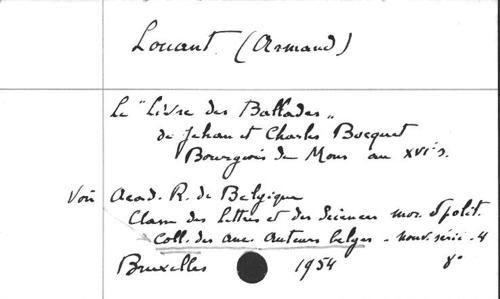 Louant (Armand)
Le "Livre des Ballades"
de Jehan et Charles Bocquet
Bourgeois de Mons au XVIe s.
Voir Acad. R. de Belgique
Classe des lettres et des Sciences mor. & polit.
Coll. des anc. auteurs belges - nouv. série - 4
Bruxelles 1954 8°